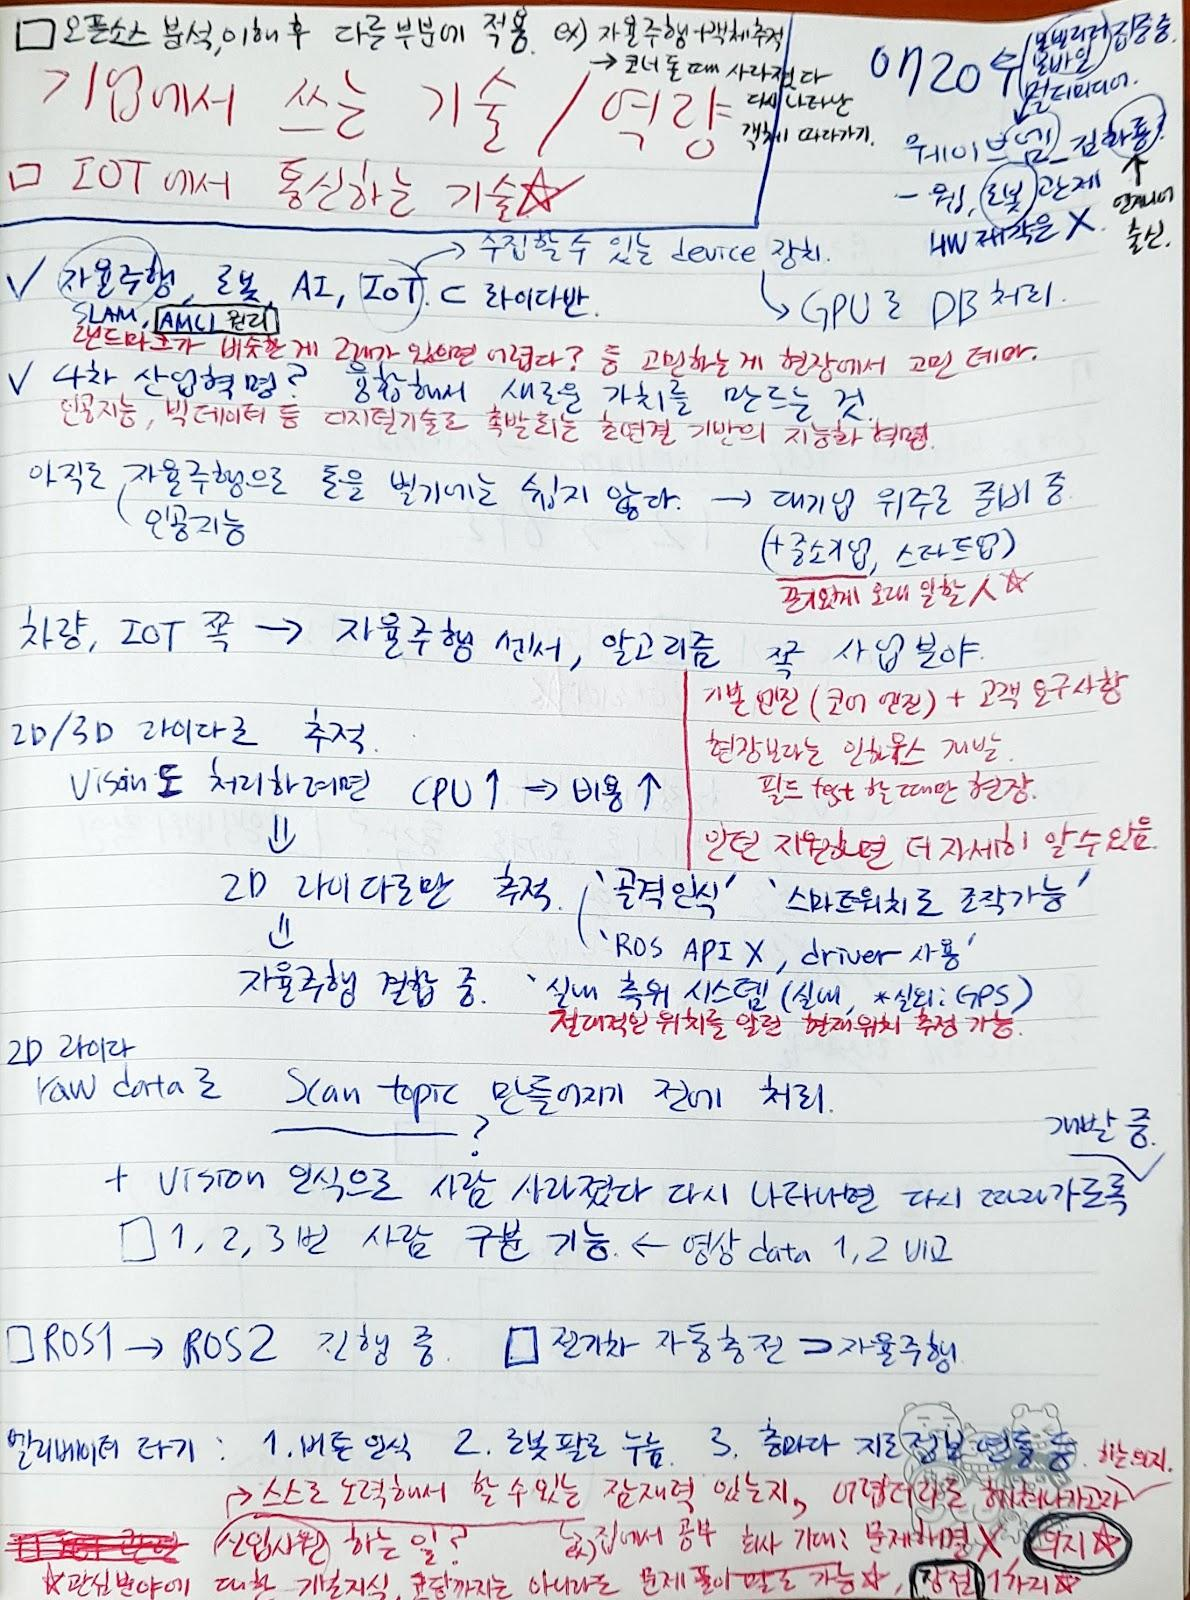 □ 오픈소스 분석, 이해 후 다른 부분에 적용. ex) 자율주행+객체추적
→ 코너 돌 때 사라졌다
다시 나타난
객체 따라가기.
기업에서 쓰는 기술 / 역량
□ IOT에서 통신하는 기술☆
0720 수
모빌리티 집중중.
모바일
멀티미디어.
웨이브엠_전화룡.
↑
엔지니어
출신.
- 웹, 로봇 관제
HW 제작은 X.
→ 수집할 수 있는 device 장치.
√ 자율주행, 로봇, AI, IoT. ⊂ 라이다반.
↳ GPU로 DB 처리.
SLAM, AMCL 원리
랜드마크가 비슷한 게 2개가 있으면 어렵다? 등 고민하는 게 현장에서 고민 테마.
√ 4차 산업혁명? 융합해서 새로운 가치를 만드는 것.
인공지능, 빅데이터 등 디지털기술로 촉발되는 초연결 기반의 지능화 혁명.
아직도 자율주행으로 돈을 벌기에는 쉽지 않다. → 대기업 위주로 준비 중.
인공지능
(+중소기업, 스타트업)
끈기있게 오래 일할 人☆
차량, IOT 쪽 → 자율주행 센서, 알고리즘 쪽 사업분야.
기본 엔진 (코어 엔진) + 고객 요구사항
현장보다는 인하우스 개발.
필드 test 할 때만 현장.
인턴 지원하면 더 자세히 알 수 있음.
2D/3D 라이다로 추적.
Vision도 처리하려면 CPU↑ → 비용↑
⇓
2D 라이다로만 추적. '골격인식' '스마트워치로 조작가능'
'ROS API X, driver 사용'
⇓
자율주행 결합 중. '실내 측위 시스템 (실내, *실외: GPS)
절대적인 위치를 알면 현재위치 추정 가능.
2D 라이다
raw data로 Scan topic 만들어지기 전에 처리.
?
개발 중.
+ Vision 인식으로 사람 사라졌다 다시 나타나면 다시 따라가도록
□ 1, 2, 3번 사람 구분 기능. ← 영상 data 1, 2 비교
□ ROS1 → ROS2 진행 중. □ 전기차 자동충전 ⊃ 자율주행.
엘리베이터 타기 : 1. 버튼 인식 2. 로봇 팔로 누름 3. 층마다 지도정보 연동 등.
→ 스스로 노력해서 할 수 있는 잠재력 있는지, 어렵더라도 헤쳐나가고자 하는 의지.
신입사원 하는 일? ex) 집에서 공부 회사 기대: 문제해결 X 의지☆
☆관심분야에 대한 기초지식, 코딩까지는 아니라도 문제 풀이 말로 가능☆, 장점 1가지☆